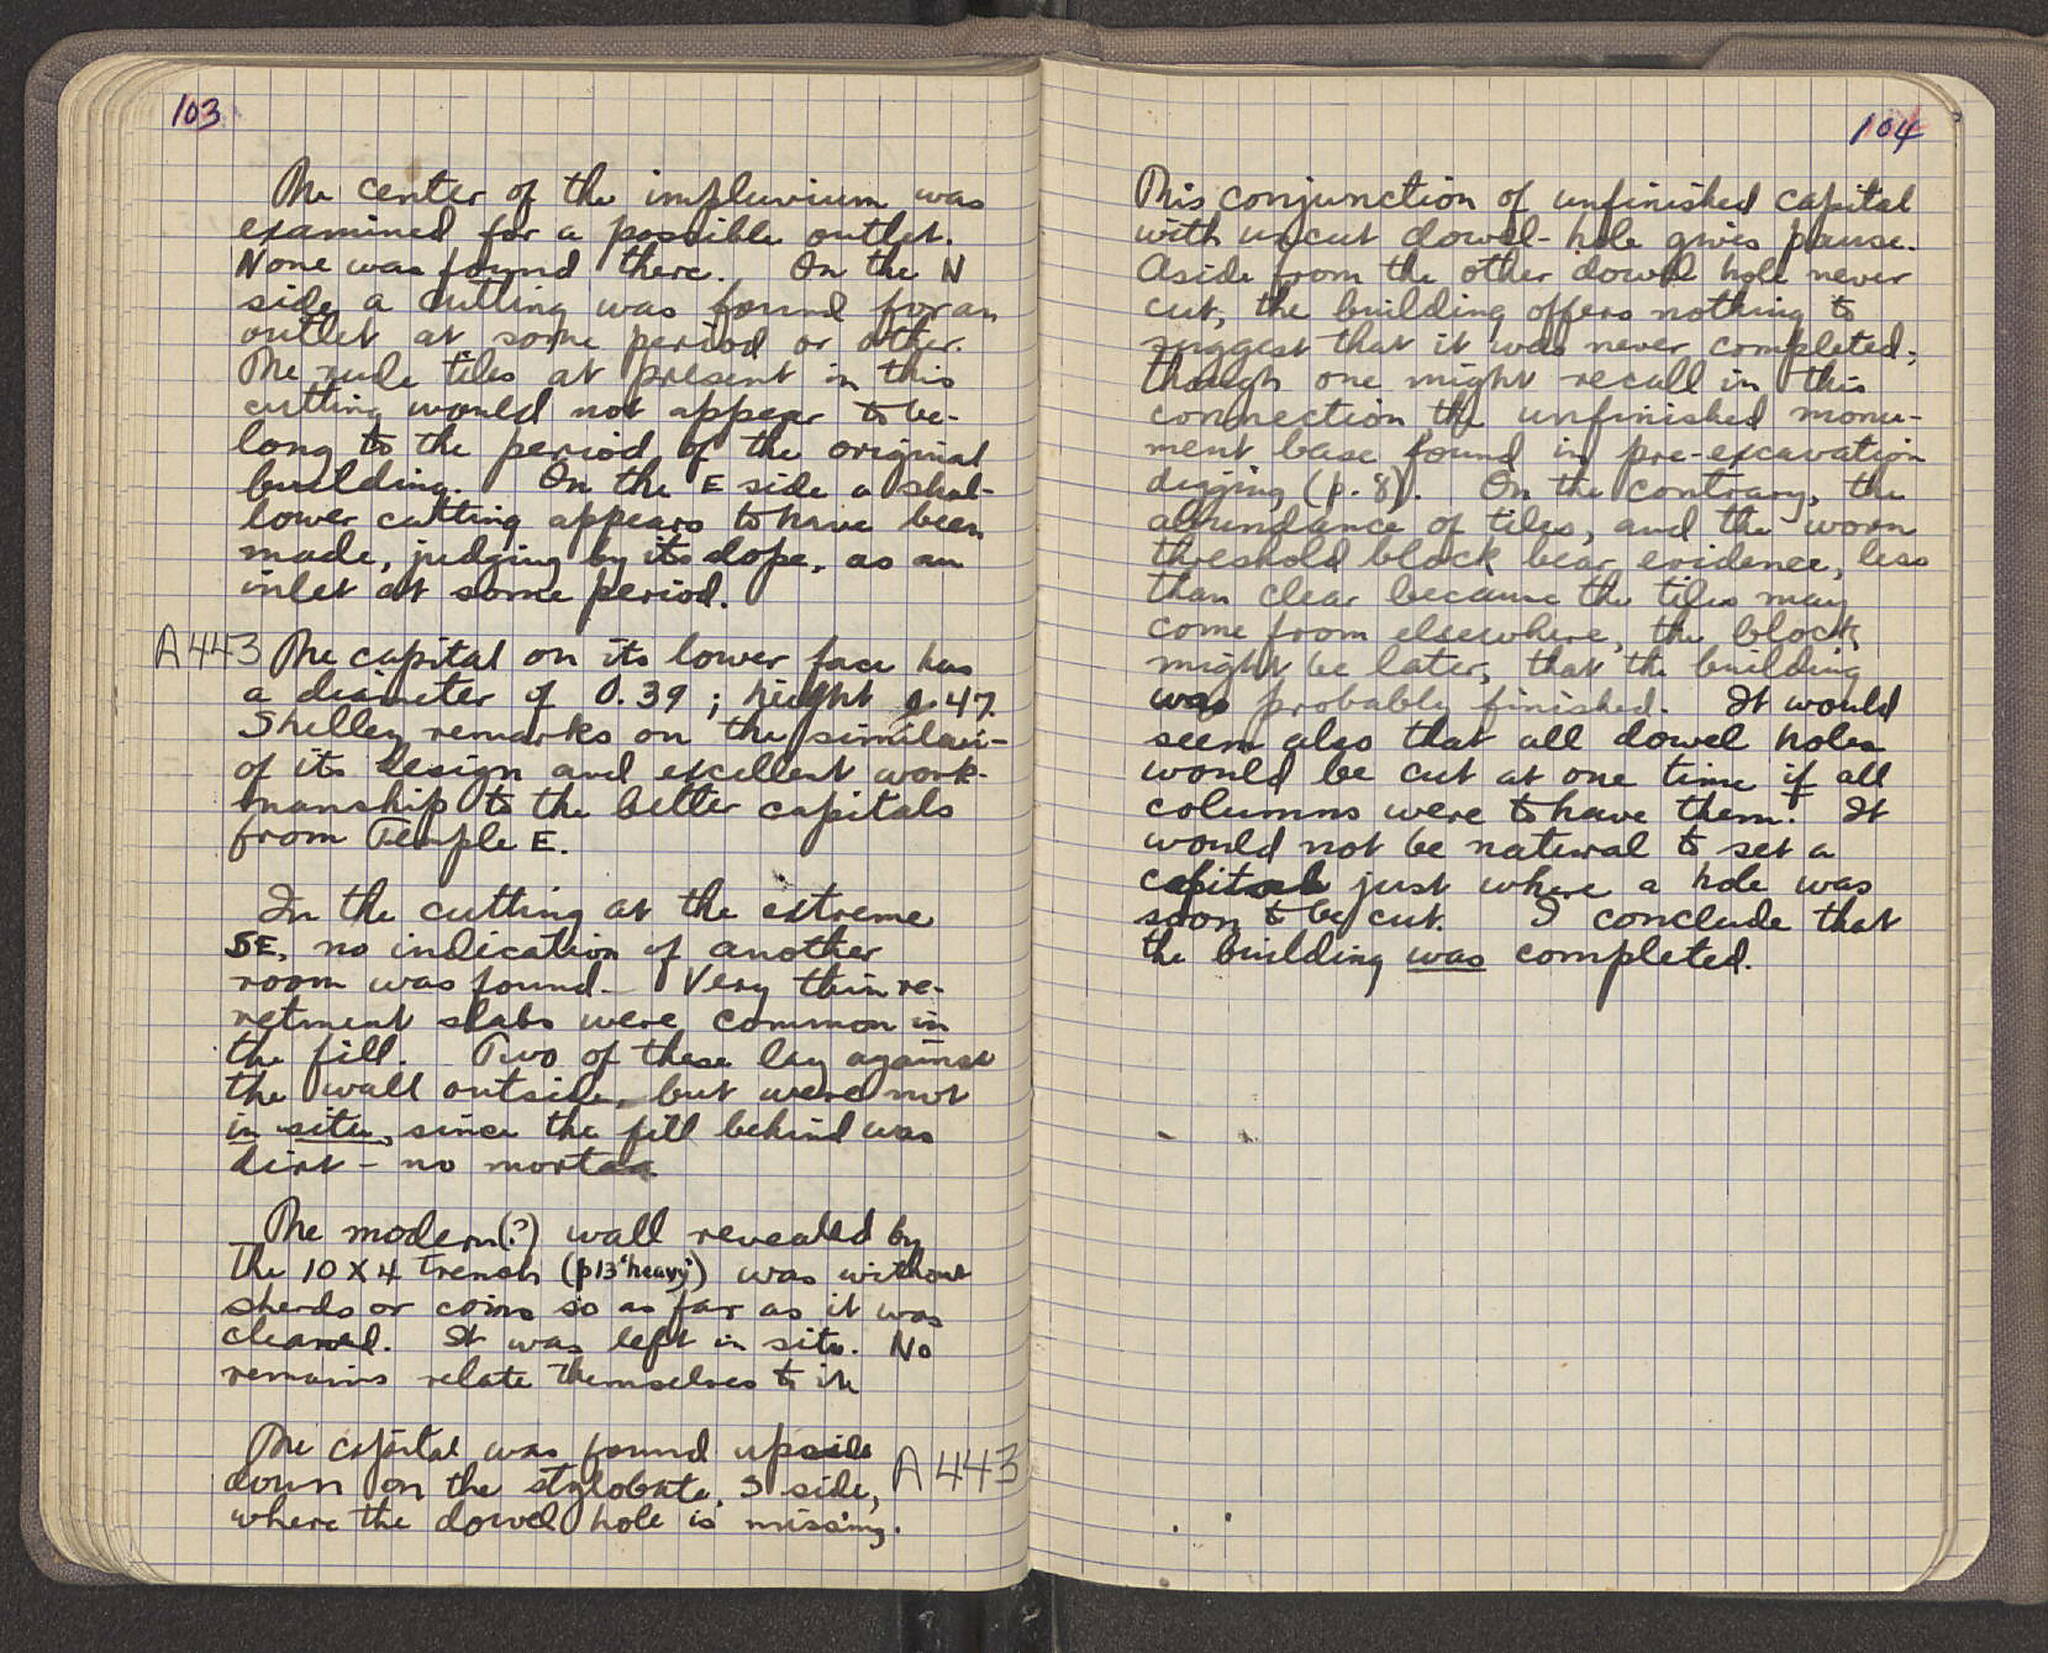 103
The center of the impluvium was
examined for a possible outlet.
None was found there. On the N
side a cutting was found for an
outlet at some period or other.
The rude tiles at present in this
cutting would not appear to be-
long to the period of the original
building. On the E side a shal-
lower cutting appears to have been
made, judging by its slope, as an
inlet at some period.
A 443 The capital on its lower face has
a diameter of 0.39; height 0.47.
Shelley remarks on the similari-
of its design and excellent work-
manship to the better capitals
from Temple E.
In the cutting at the extreme
SE, no indication of another
room was found. Very thin re-
vetment slabs were common in
the fill. Two of these lay against
the wall outside, but were not
in situ, since the fill behind was
dirt – no mortar
The modern(?) wall revealed by
the 10 X 4 trench (p13 "heavy") was without
sherds or coins so as far as it was
cleaned. It was left in situ. No
remains relate themselves to it
The capital was found upside
down on the stylobate, S side, A 443
where the dowel hole is missing.
104
This conjunction of unfinished capital
with uncut dowel-hole gives pause.
Aside from the other dowel hole never
cut, the building offers nothing to
suggest that it was never completed;
though one might recall in this
connection the unfinished monu-
ment base found in pre-excavation
digging (p. 8). On the contrary, the
abundance of tiles, and the worn
threshold block bear evidence, less
than clear because the tiles may
come from elsewhere, the block
might be later, that the building
was probably finished. It would
seem also that all dowel holes
would be cut at one time if all
columns were to have them. It
would not be natural to set a
capital just where a hole was
soon to be cut. I conclude that
the building was completed.